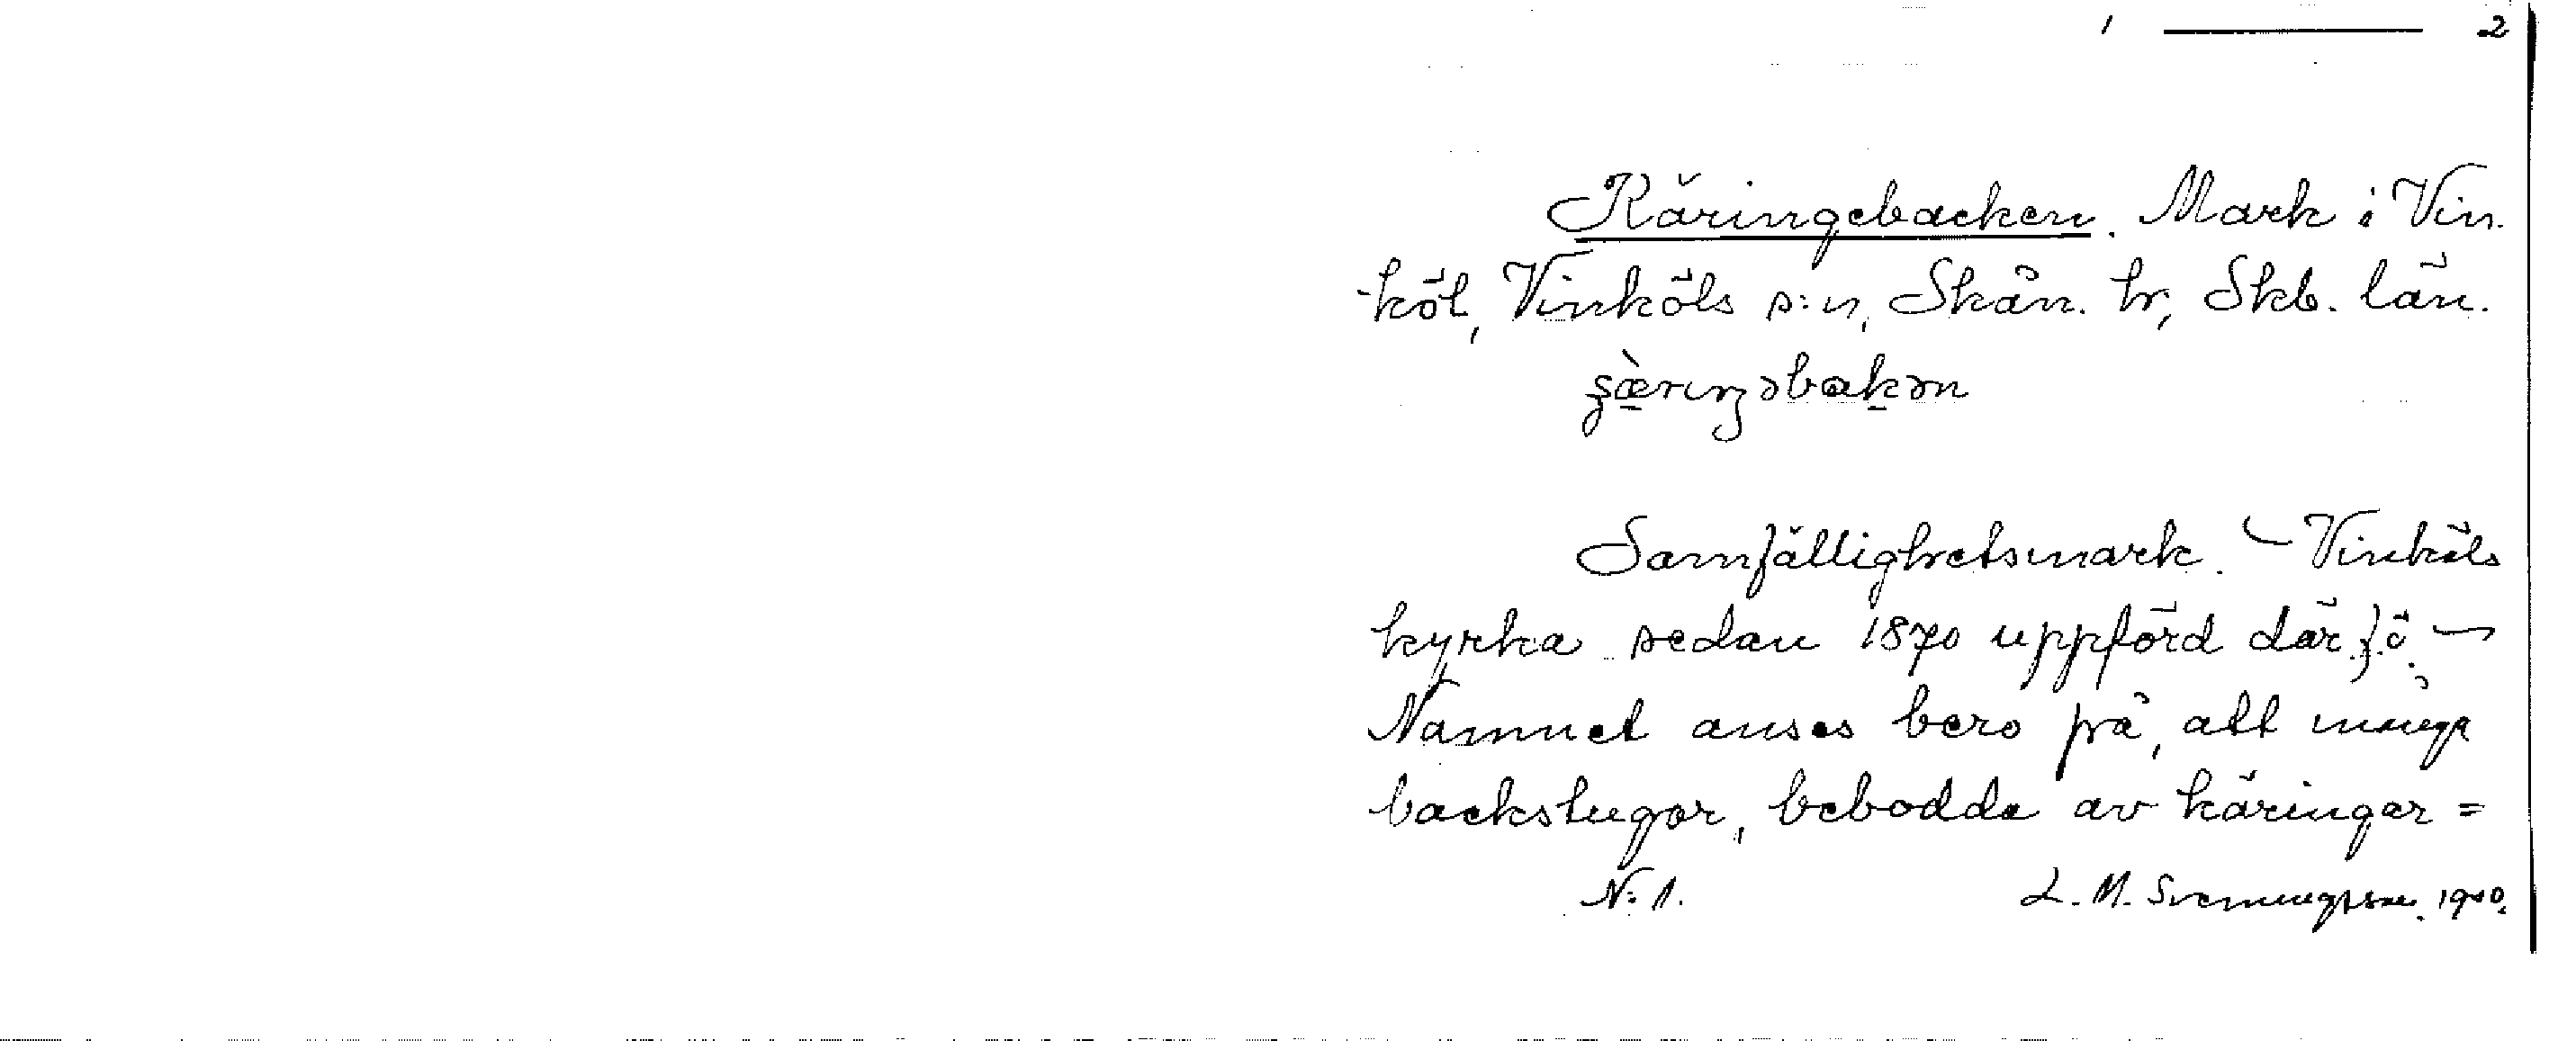 1 ——— 2
Käringebacken. Mark i Vin-
köl, Vinköls s:n, Skån. hr, Skb. län.
Samfällighetsmark. – Vinköls
kyrka sedan 1870 uppförd där f.ö. –
Namnet anses bero på, att många
backstugor, bebodda av käringar =
N:1. L. M. Svenungsson. 1940.